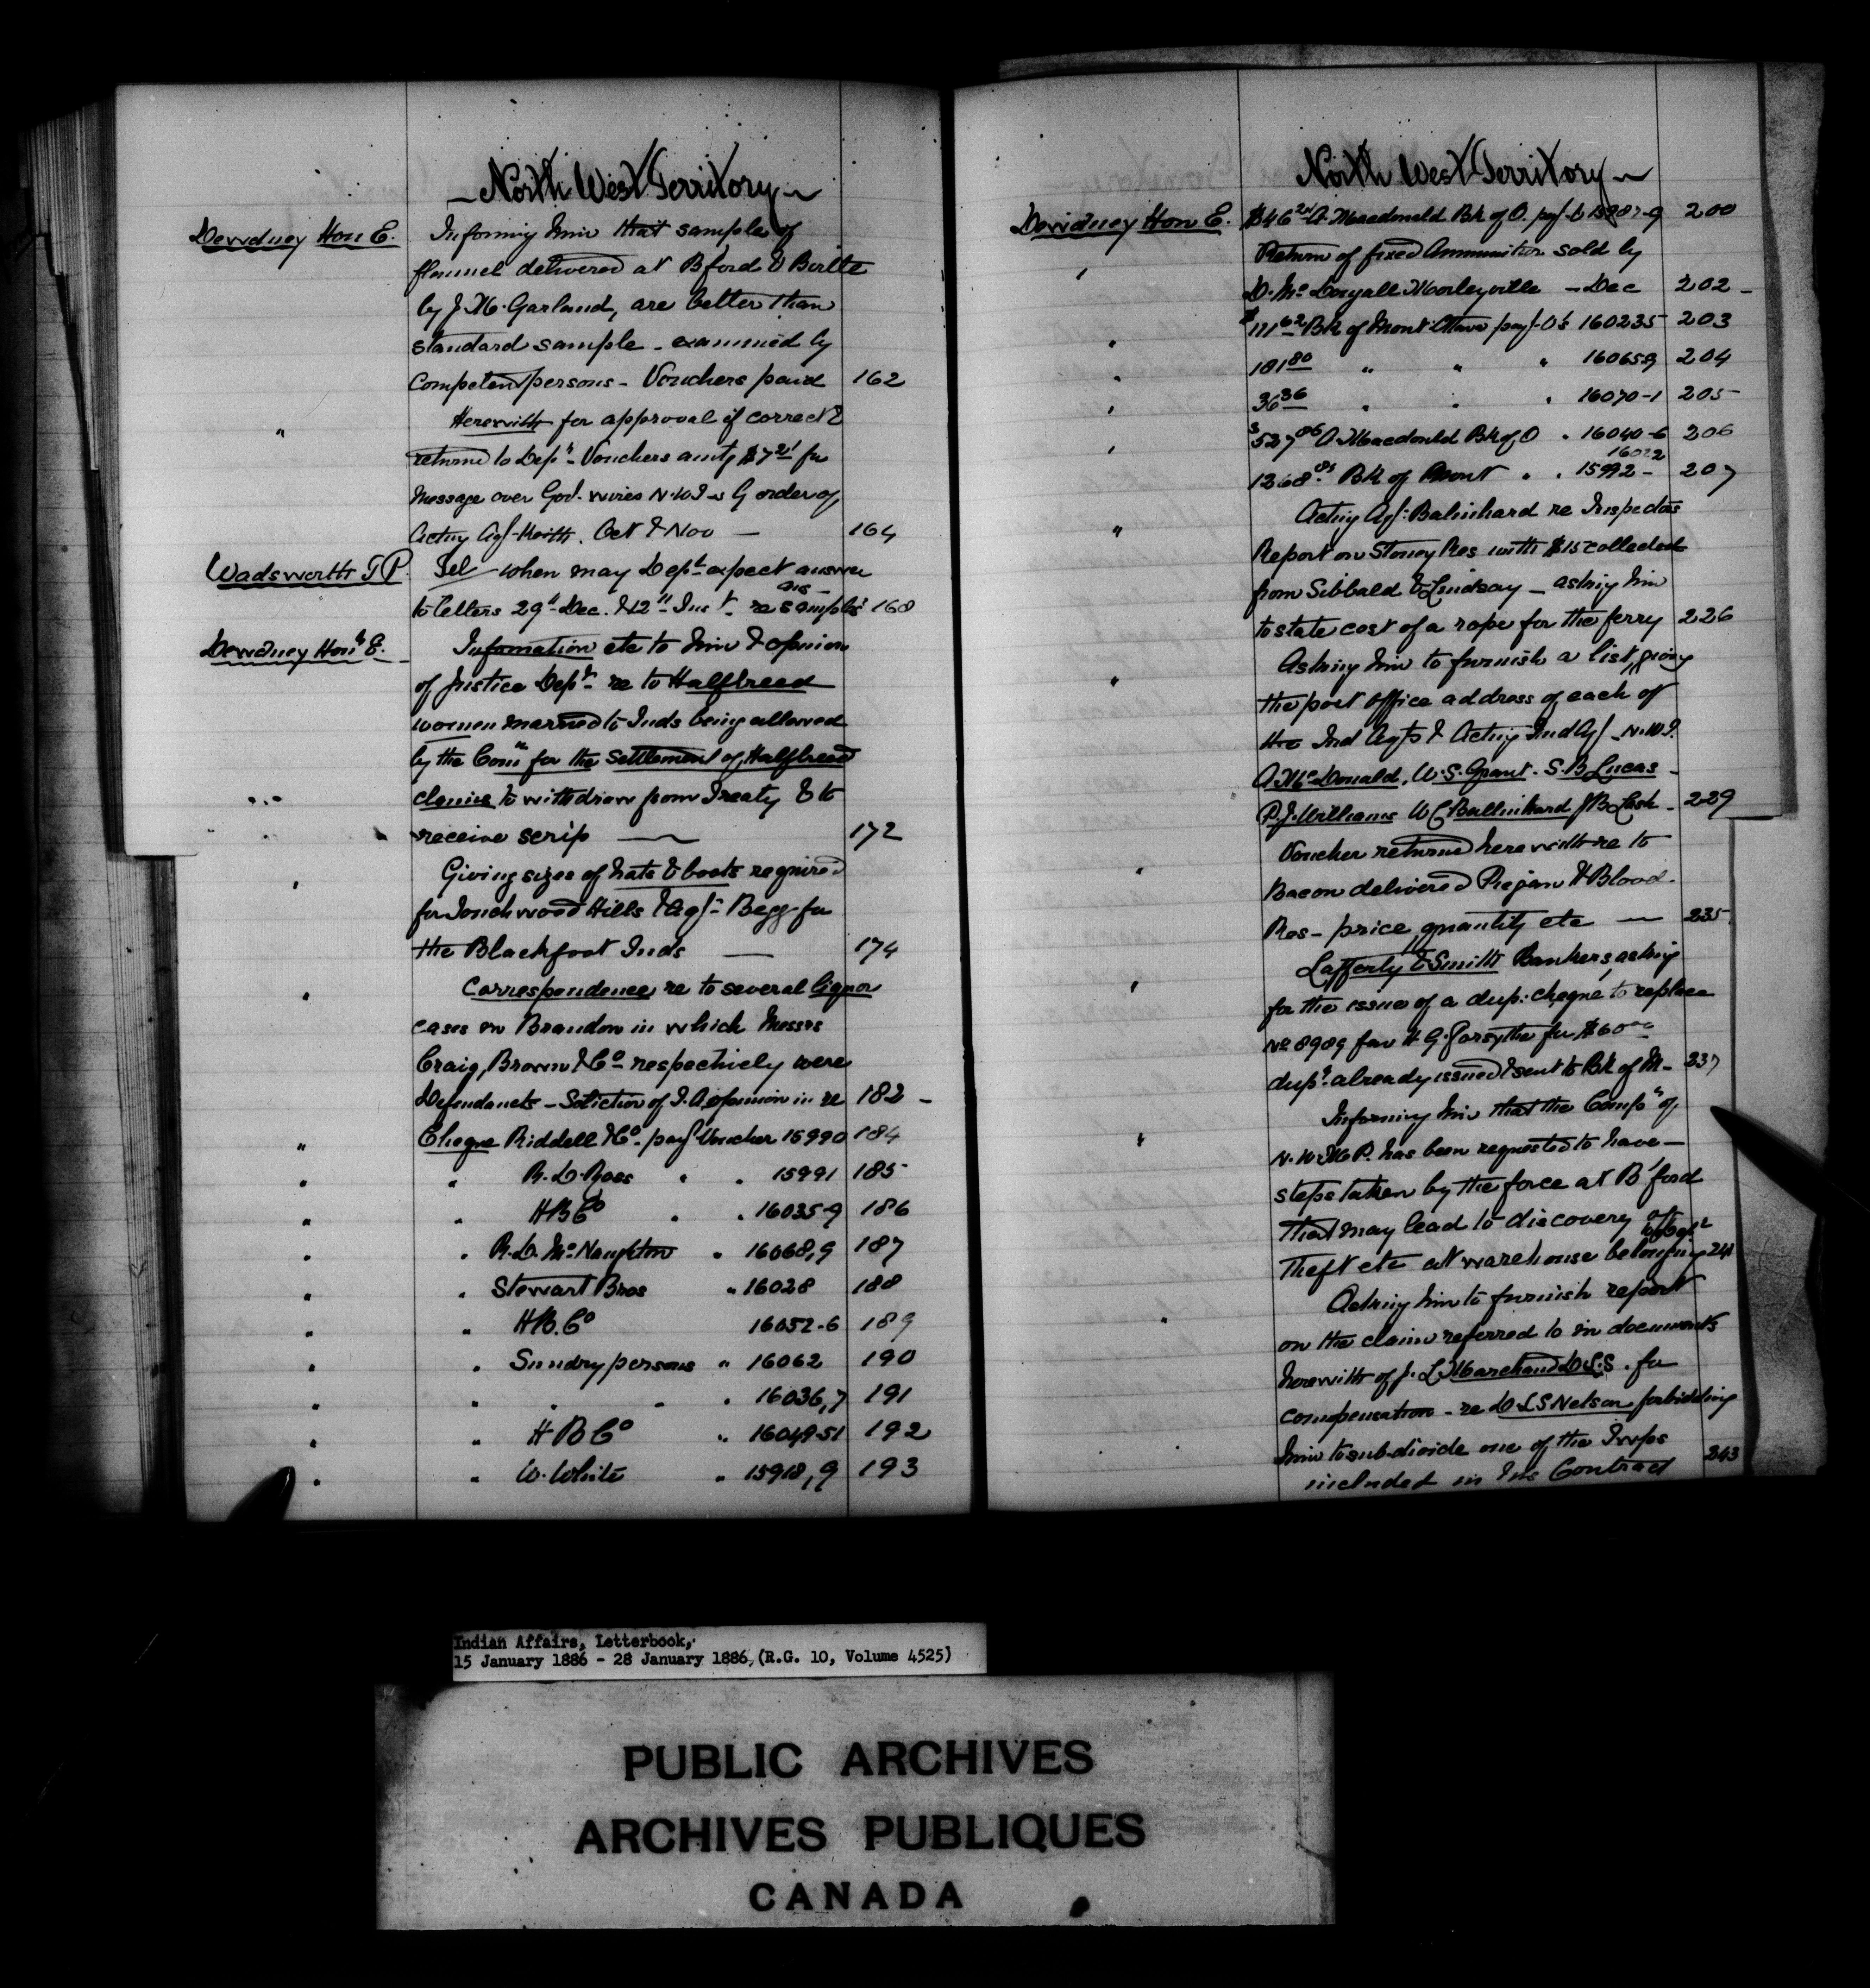 - North West Territory -
Dewdney Hon E. Informing him that sample of
flannel delivered at Bford & Birtle
by J. M. Garland, are better than
standard sample - examined by
Competent persons - Vouchers paid 162
" Herewith for approval if correct &
returned to Dept - Vouchers amtg $7 21 for
Message over Govt wires N.W.T. - G order of
Acting Agt Keith. Oct & Nov — 164
Wadsworth T P. Tel - when may Dept expect answer
to letters 29th Dec. & 12th Inst - re samples 168
Dewdney Hon E. Information etc to him & opinion
of Justice Dept - re to Halfbreed
women married to Inds being allowed
by the Comn for the Settlement of Halfbreed
claims to withdraw from Treaty & to
receive scrip — 172
" Giving sizes of hats & boots required
for Touchwood Hills & Agt Begg for
the Blackfoot Inds — 174
" Correspondence re to several liquor
cases in Brandon in which Messrs
Craig, Brown & Co respectively were
Defendants - of opinion in re 182 -
" Cheque Riddell & Co - payt Voucher 15990 184
" " R. D. " " 15991 185
" " H B Co " " 16035-9 186
" " R. D. McNaughton " 16068,9 187
" " Stewart Bros " 16028 188
" " H B. Co 16052-6 189
" " Sundry persons " 16062 190
" " " " " 16036,7 191
" " H B Co " 16049-51 192
" " W. White " 15918,9 193
North West Territory -
Dewdney Hon E. $46 A. Macdonald Bk of O. payt 15987-9 200
" Return of fixed Ammunition sold by
D. McDougall Morleyville - Dec 202 -
" $111 62 Bk of Mont Ottawa payt 160235 203
" 181 80 " " " 160659 204
" 36 36 " " " 16070-1 205
" $527 06 A Macdonald Bk of O " 16040-6 206
16022
1368 Bk of Mont " " 15992 - 207
" Acting Agt Balinhard re Inspectors
Report on Stoney Res with $15 collected
from Sibbald & Lindsay - asking him
to state cost of a rope for the ferry 226
" Asking him to furnish a list, giving
the post office address of each of
the Ind Agts & Acting Ind Agt - N.W.T.
A. McDonald, W. S. Grant. S. B Lucas -
P. J. Williams W C Ballinhard J B Lash - 229
" Voucher returned herewith re to
Bacon delivered Piegan & Blood
Res - price, quantity etc — 235
" Lafferty & Smith Bankers, asking
for the issue of a dup. cheque to replace
No 8989 fav H G. Forsythe for $60 00
dupt already issued & sent to Bk of M - 237
" Informing him that the Compt of
N. W. M P. has been requested to have —
steps taken by the force at B'ford
that may lead to discovery of
theft etc at warehouse belonging to Dept 241
" Asking him to furnish report
on the claim referred to in documents
herewith of J. L Marchand D. L. S. for
compensation - re D L S Nelson forbidding
him to sub-divide one of the Twps
included in his Contract 243
Indian Affairs, Letterbook,
15 January 1886 - 28 January 1886, (R.G. 10, Volume 4525)
PUBLIC ARCHIVES
ARCHIVES PUBLIQUES
CANADA